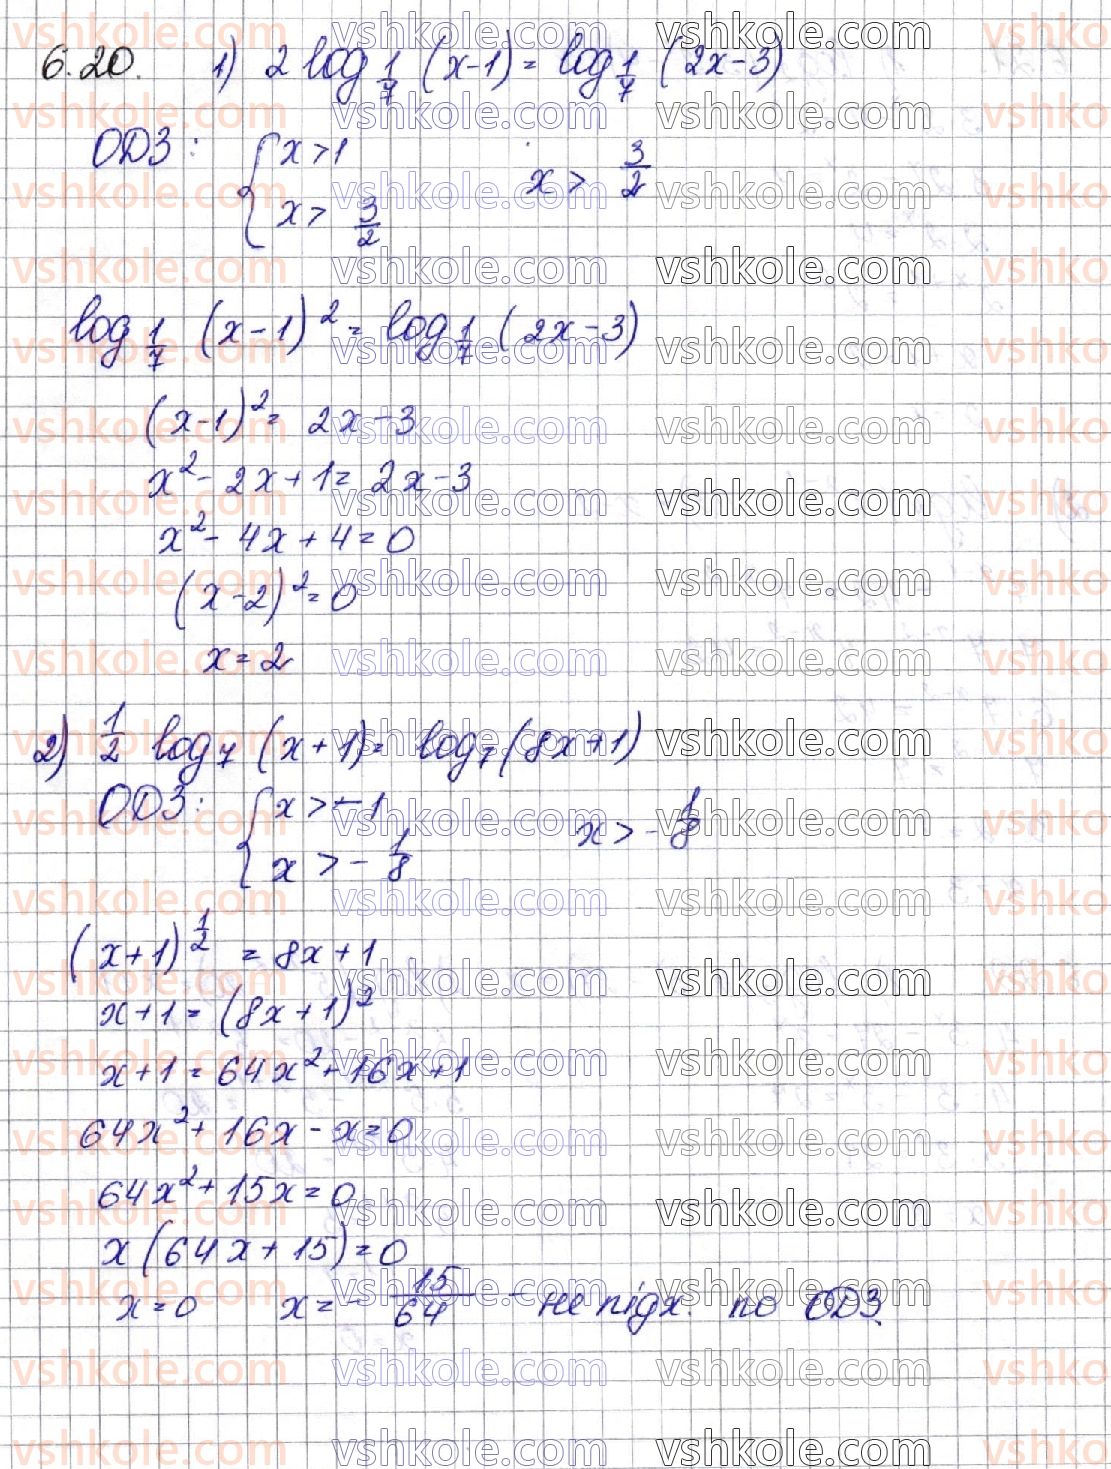 6.20. 1) 2 log_{1/7} (x-1) = log_{1/7} (2x-3)
ОДЗ: { x > 1
x > 3/2
x > 3/2
log_{1/7} (x-1)^2 = log_{1/7} (2x-3)
(x-1)^2 = 2x-3
x^2 - 2x + 1 = 2x-3
x^2 - 4x + 4 = 0
(x-2)^2 = 0
x = 2
2) 1/2 log_7 (x+1) = log_7 (8x+1)
ОДЗ: { x > -1
x > -1/8
x > -1/8
(x+1)^{1/2} = 8x+1
x+1 = (8x+1)^2
x+1 = 64x^2 + 16x+1
64x^2 + 16x - x = 0
64x^2 + 15x = 0
x (64x + 15) = 0
x = 0 x = - 15/64 - не підх. по ОДЗ.
vshkole.com